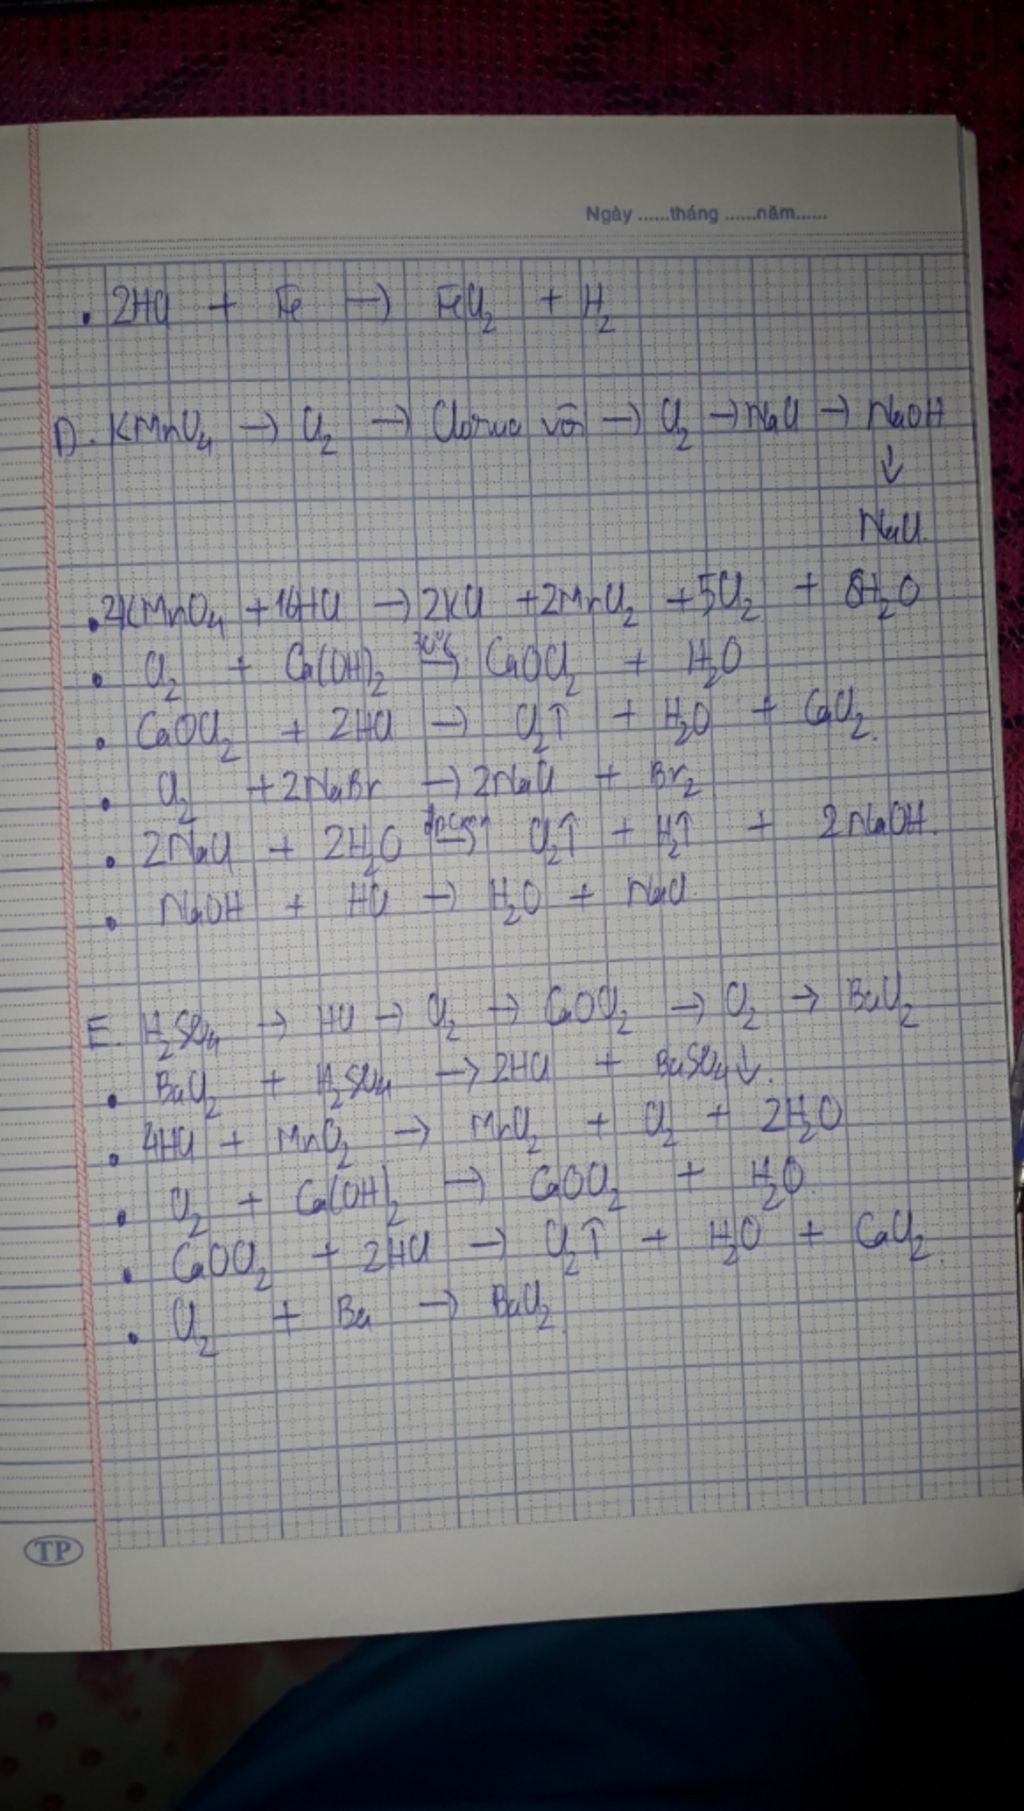 Ngày ......tháng ......năm......
. 2HCl + Fe → FeCl₂ + H₂
D. KMnO₄ → Cl₂ → Clorua vôi → Cl₂ → NaCl → NaOH
↓
NaCl.
. 2KMnO₄ + 16HCl → 2KCl + 2MnCl₂ + 5Cl₂ + 8H₂O
. Cl₂ + Ca(OH)₂ → CaOCl₂ + H₂O
. CaOCl₂ + 2HCl → Cl₂↑ + H₂O + CaCl₂.
. Cl₂ + 2NaBr → 2NaCl + Br₂
. 2NaCl + 2H₂O → Cl₂↑ + H₂↑ + 2NaOH.
. NaOH + HCl → H₂O + NaCl.
E. H₂SO₄ → HCl → Cl₂ → CaOCl₂ → Cl₂ → BaCl₂
. BaCl₂ + H₂SO₄ → 2HCl + BaSO₄↓.
. 4HCl + MnO₂ → MnCl₂ + Cl₂ + 2H₂O
. Cl₂ + Ca(OH)₂ → CaOCl₂ + H₂O.
. CaOCl₂ + 2HCl → Cl₂↑ + H₂O + CaCl₂.
. Cl₂ + Ba → BaCl₂.
TP